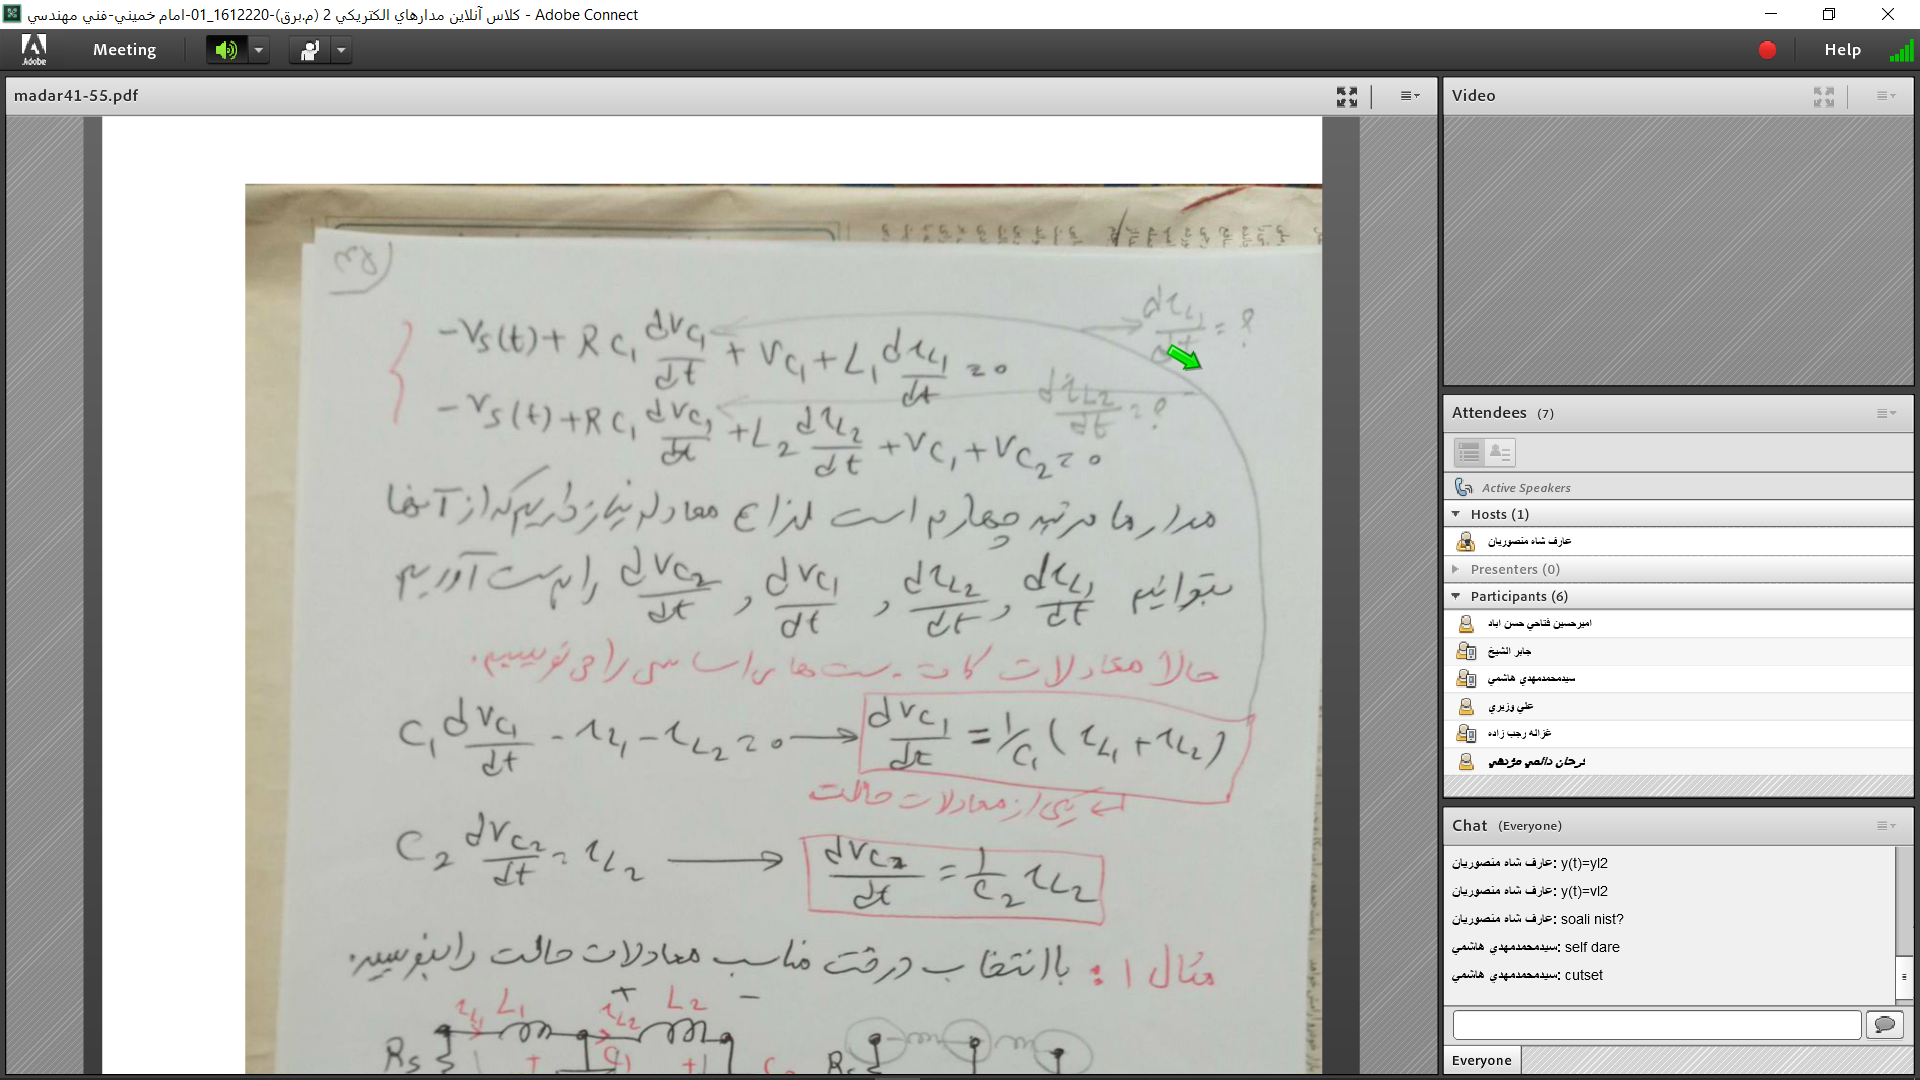 کلاس آنلاين مدارهاي الکتريکي 2 (م.برق)-1612220_01-امام خميني-فني مهندسي - Adobe Connect
Adobe
Meeting
Help
madar41-55.pdf
-Vs(t) + R C₁ dVC₁/dt + VC₁ + L₁ diL₁/dt = 0
diL₁/dt = ?
-Vs(t) + R C₁ dVC₁/dt + L₂ diL₂/dt + VC₁ + VC₂ = 0
diL₂/dt = ?
مدار ما مرتبه چهارم است لذا ع معادله نیاز داریم که از آنها
بتوانیم diL₁/dt , diL₂/dt , dVC₁/dt , dVC₂/dt را بدست آوریم
حالا معادلات کات ست های اساسی را می نویسیم.
C₁ dVC₁/dt - iL₁ - iL₂ = 0 → dVC₁/dt = 1/C₁ (iL₁ + iL₂)
یکی از معادلات حالت
C₂ dVC₂/dt = iL₂ → dVC₂/dt = 1/C₂ iL₂
مثال ۱: با انتخاب درخت مناسب معادلات حالت را بنویسید.
iL₁ L₁ + iL₂ L₂ -
Rs + C₁ +
Video
Attendees (7)
Active Speakers
Hosts (1)
عارف شاه منصوريان
Presenters (0)
Participants (6)
اميرحسين فتاحي حسن اباد
جابر الشيخ
سيدمحمدمهدي هاشمي
علي وزيري
غزاله رجب زاده
Chat (Everyone)
عارف شاه منصوريان: y(t)=yl2
عارف شاه منصوريان: y(t)=vl2
عارف شاه منصوريان: soali nist?
سيدمحمدمهدي هاشمي: self dare
سيدمحمدمهدي هاشمي: cutset
Everyone